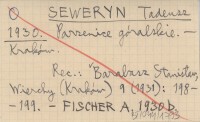 SEWERYN Tadeusz
1930. Parzenice góralskie. —
Kraków.
Rec.: Barabasz Stanisław,
Wierchy (Kraków) 9 (1931): 198-
-199. — FISCHER A, 1930 b.